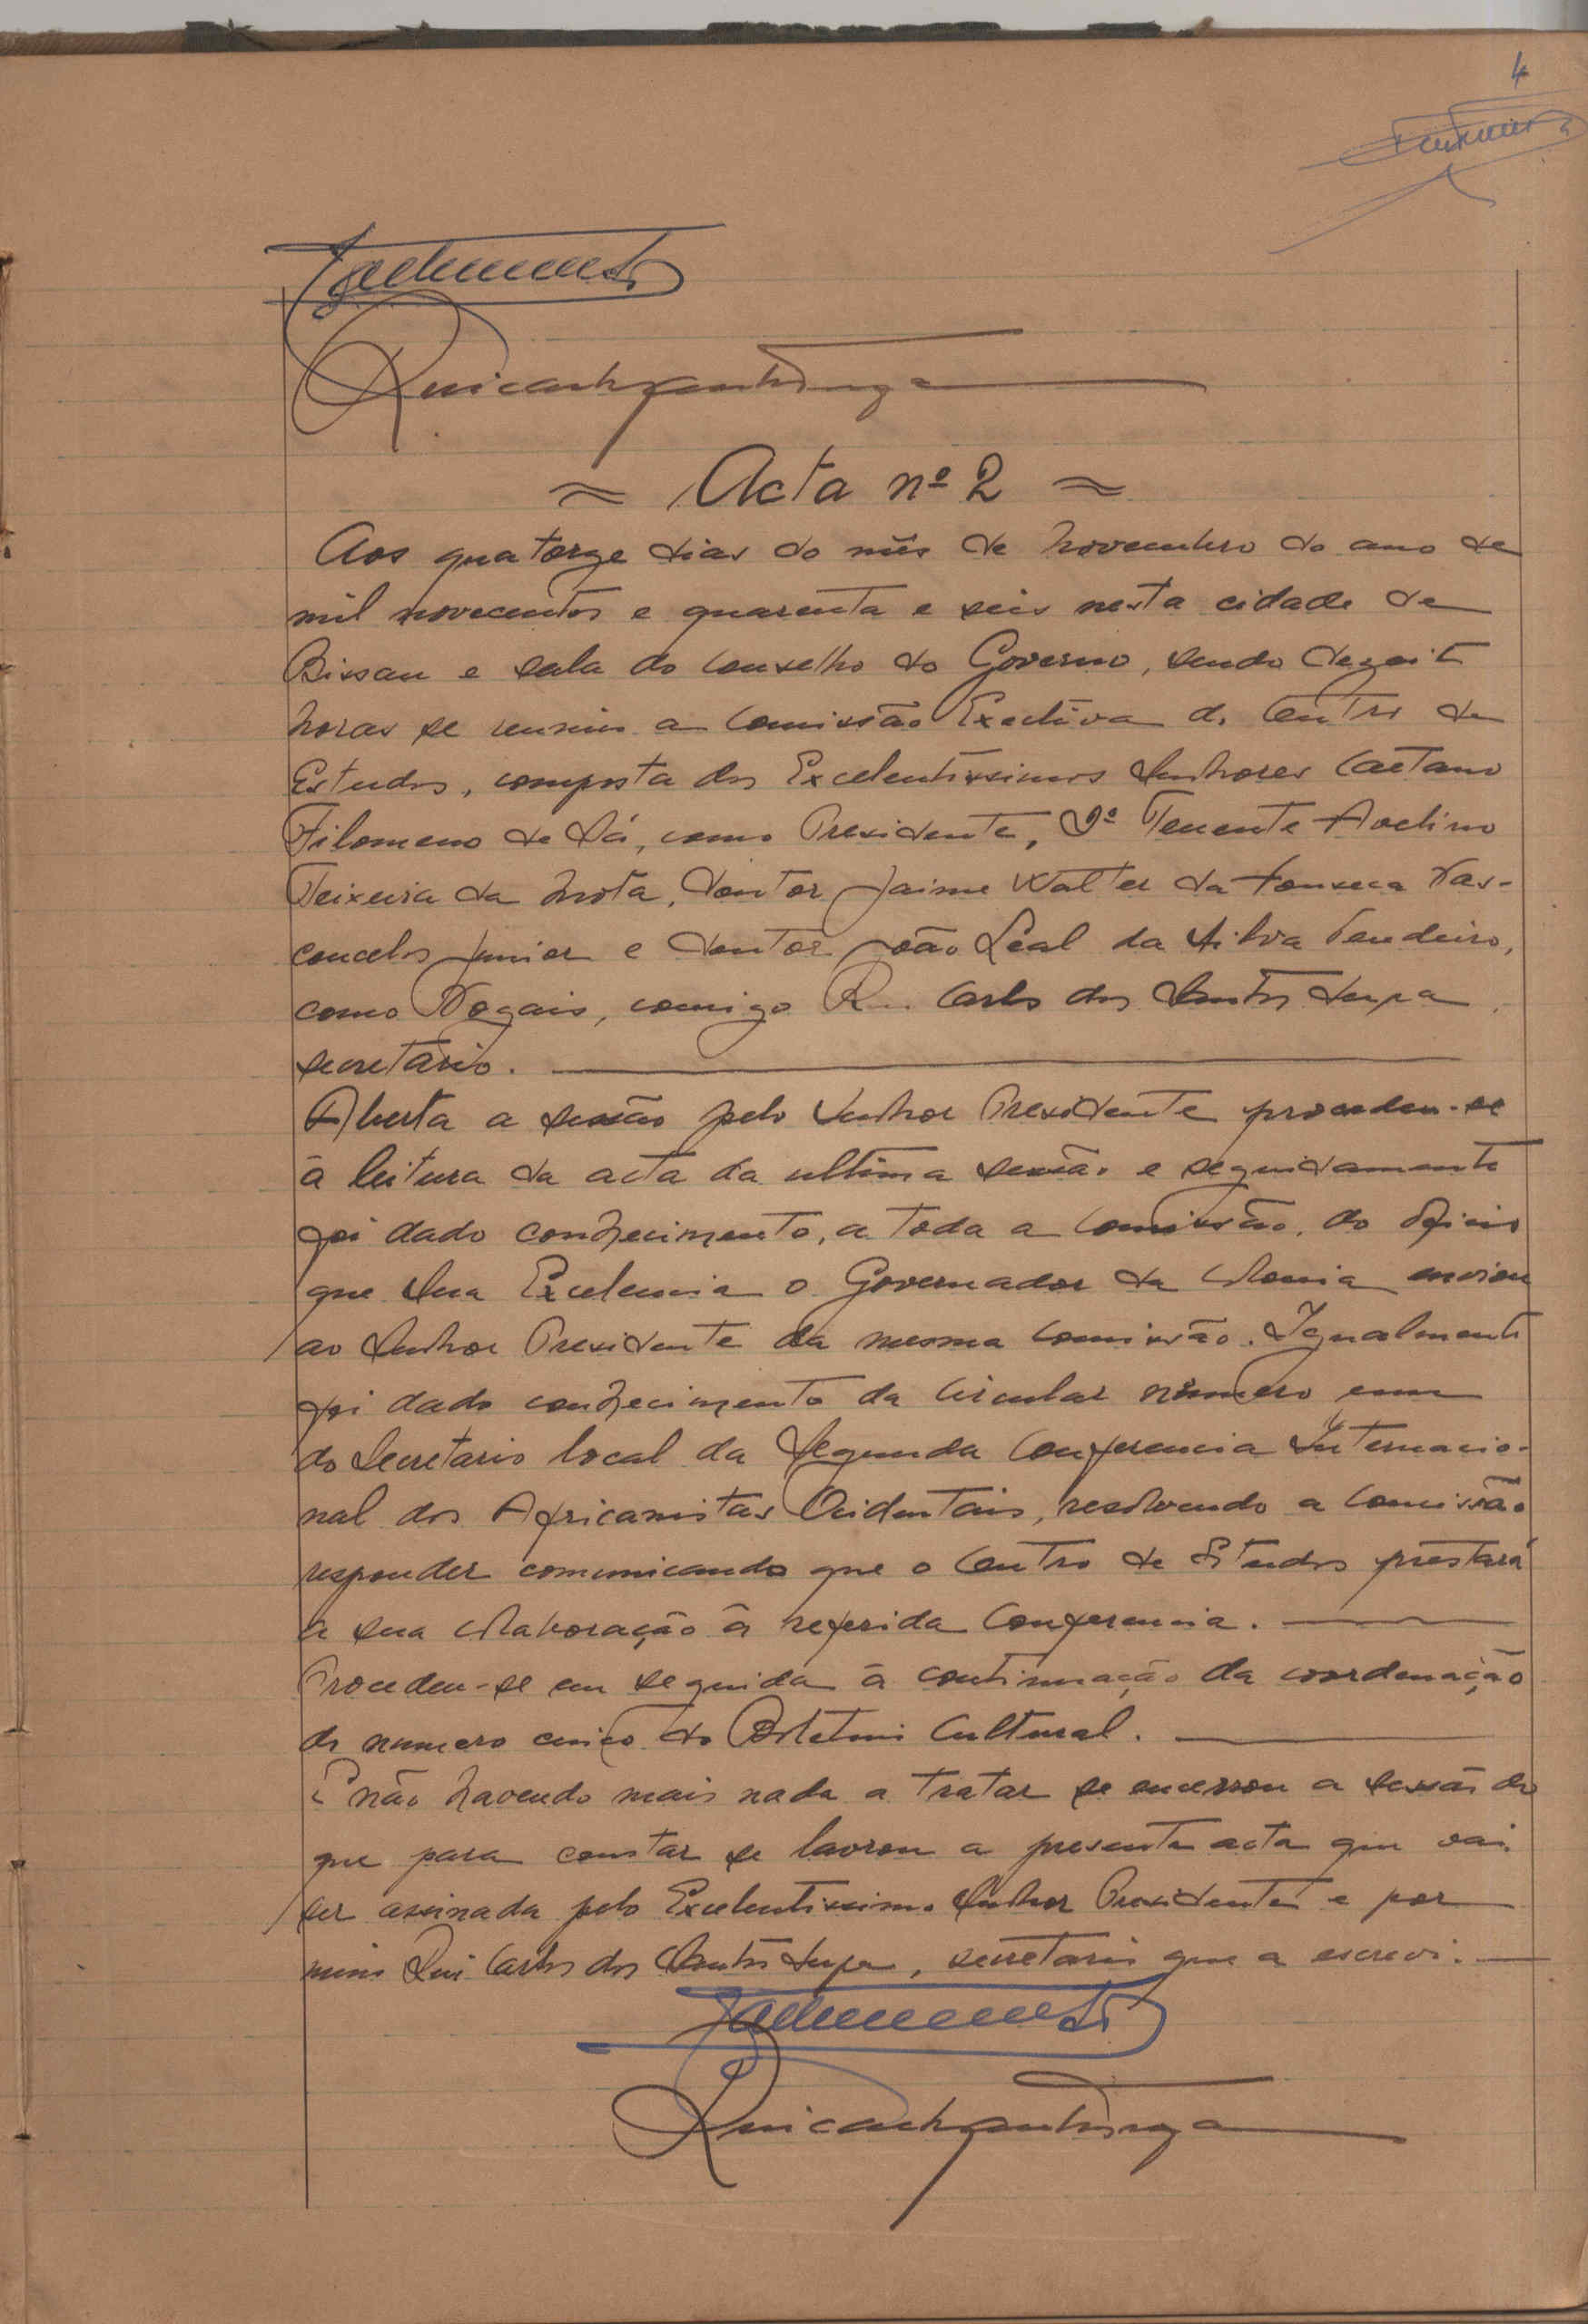 4
≈ Acta nº 2 ≈
Aos quatorze dias do mês de Novembro do ano de
mil novecentos e quarenta e seis nesta cidade de
Bissau e sala do Conselho do Governo, sendo dezoit
horas se reuniu a Comissão Exectiva do Centro de
Estudos, composta dos Excelentissimos Senhores Caetano
Filomeno de Sá, como Presidente, 2º Tenente Avelino
Teixeira da Mota, doutor Jaime Walter da Fonseca Vas-
concelos Junior e doutor João Leal da Silva Tendeiro,
como Vogais, comigo Rui Carlos dos Santos Serpa,
secretário.
Aberta a sessão pelo Senhor Presidente procedeu-se
à leitura da acta da ultima sessão e seguidamente
foi dado conhecimento, a toda a Comissão, do oficio
que Sua Excelencia o Governador da Colonia enviou
ao Senhor Presidente da mesma Comissão. Igualmente
foi dado conhecimento da Circular número um
do Secretario local da Segunda Conferencia Internacio-
nal dos Africanistas Ocidentais, resolvendo a Comissão
responder comunicando que o Centro de Estudos prestará
a sua colaboração à referida Conferencia.
Procedeu-se em seguida à continuação da coordenação
do numero cinco do Boletim Cultural.
E não havendo mais nada a tratar se encerrou a sessão do
que para constar se lavrou a presente acta que vai
ser assinada pelo Excelentissimo Senhor Presidente e por
mim Rui Carlos dos Santos Serpa, secretario que a escrevi.